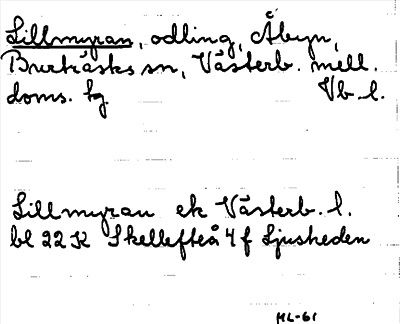 Lillmyran, odling, Åbyn,
Burträsks sn, Västerb. mell.
doms. hg Vb. l.
Lillmyran ek Västerb. l.
bl 22 K Skellefteå 4 f Ljusheden
ML-61